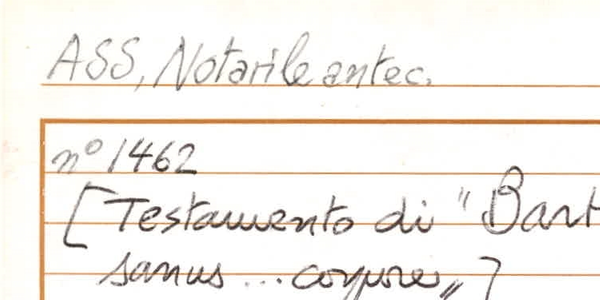 ASS, Notarile antec.
n° 1462
[Testamento di "Bart
sanus ... corpore"]